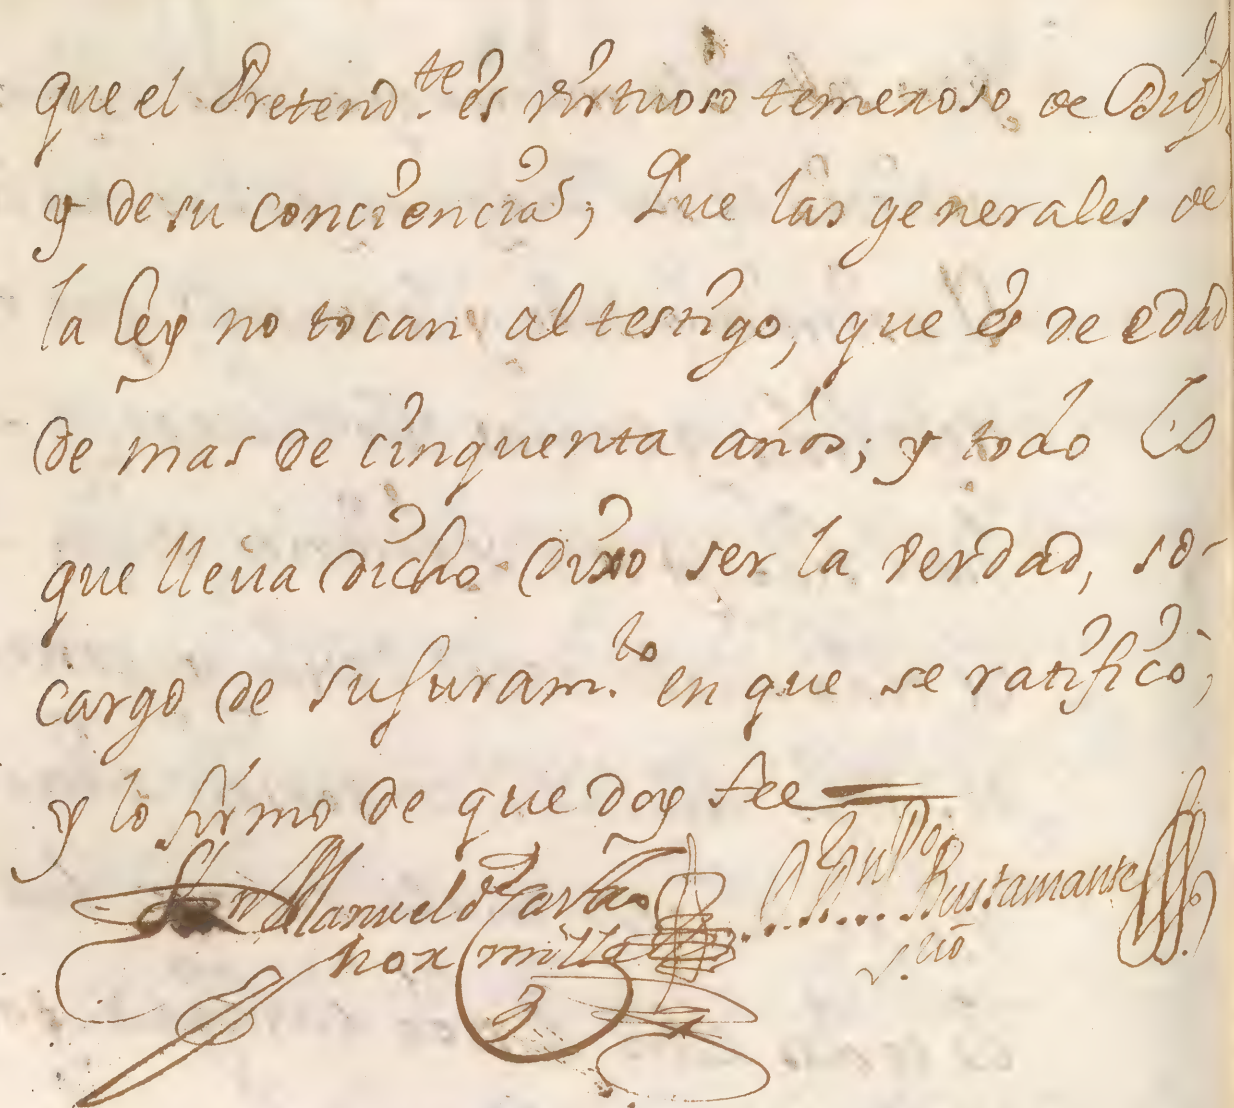 que el Pretend.te es virtuoso temeroso de Dios
y de su conciencia; Que las generales de
la ley no tocan al testigo, que es de edad
de mas de cinquenta años; y todo lo
que lleva dicho dixo ser la verdad, so-
cargo de su juram.to en que se ratificó;
y lo firmo de que doy fee
Manuel de
Bustamante